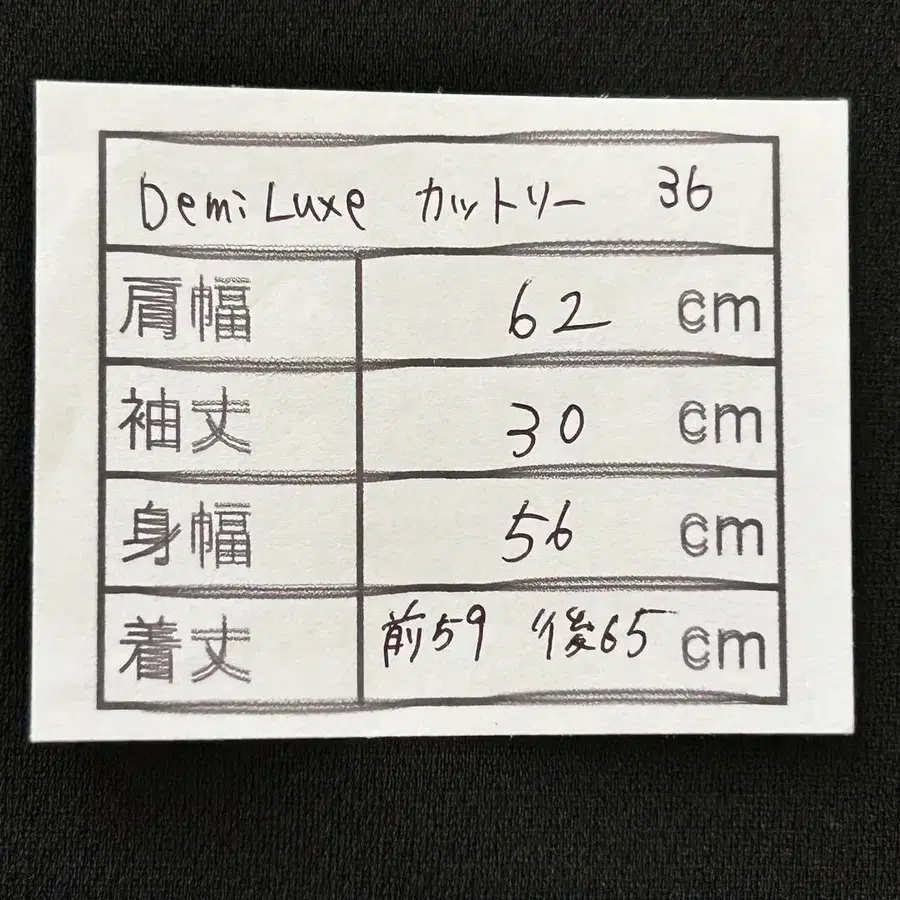 Demi Luxe カットソー 36
肩幅 62 cm
袖丈 30 cm
身幅 56 cm
着丈 前59 後65 cm